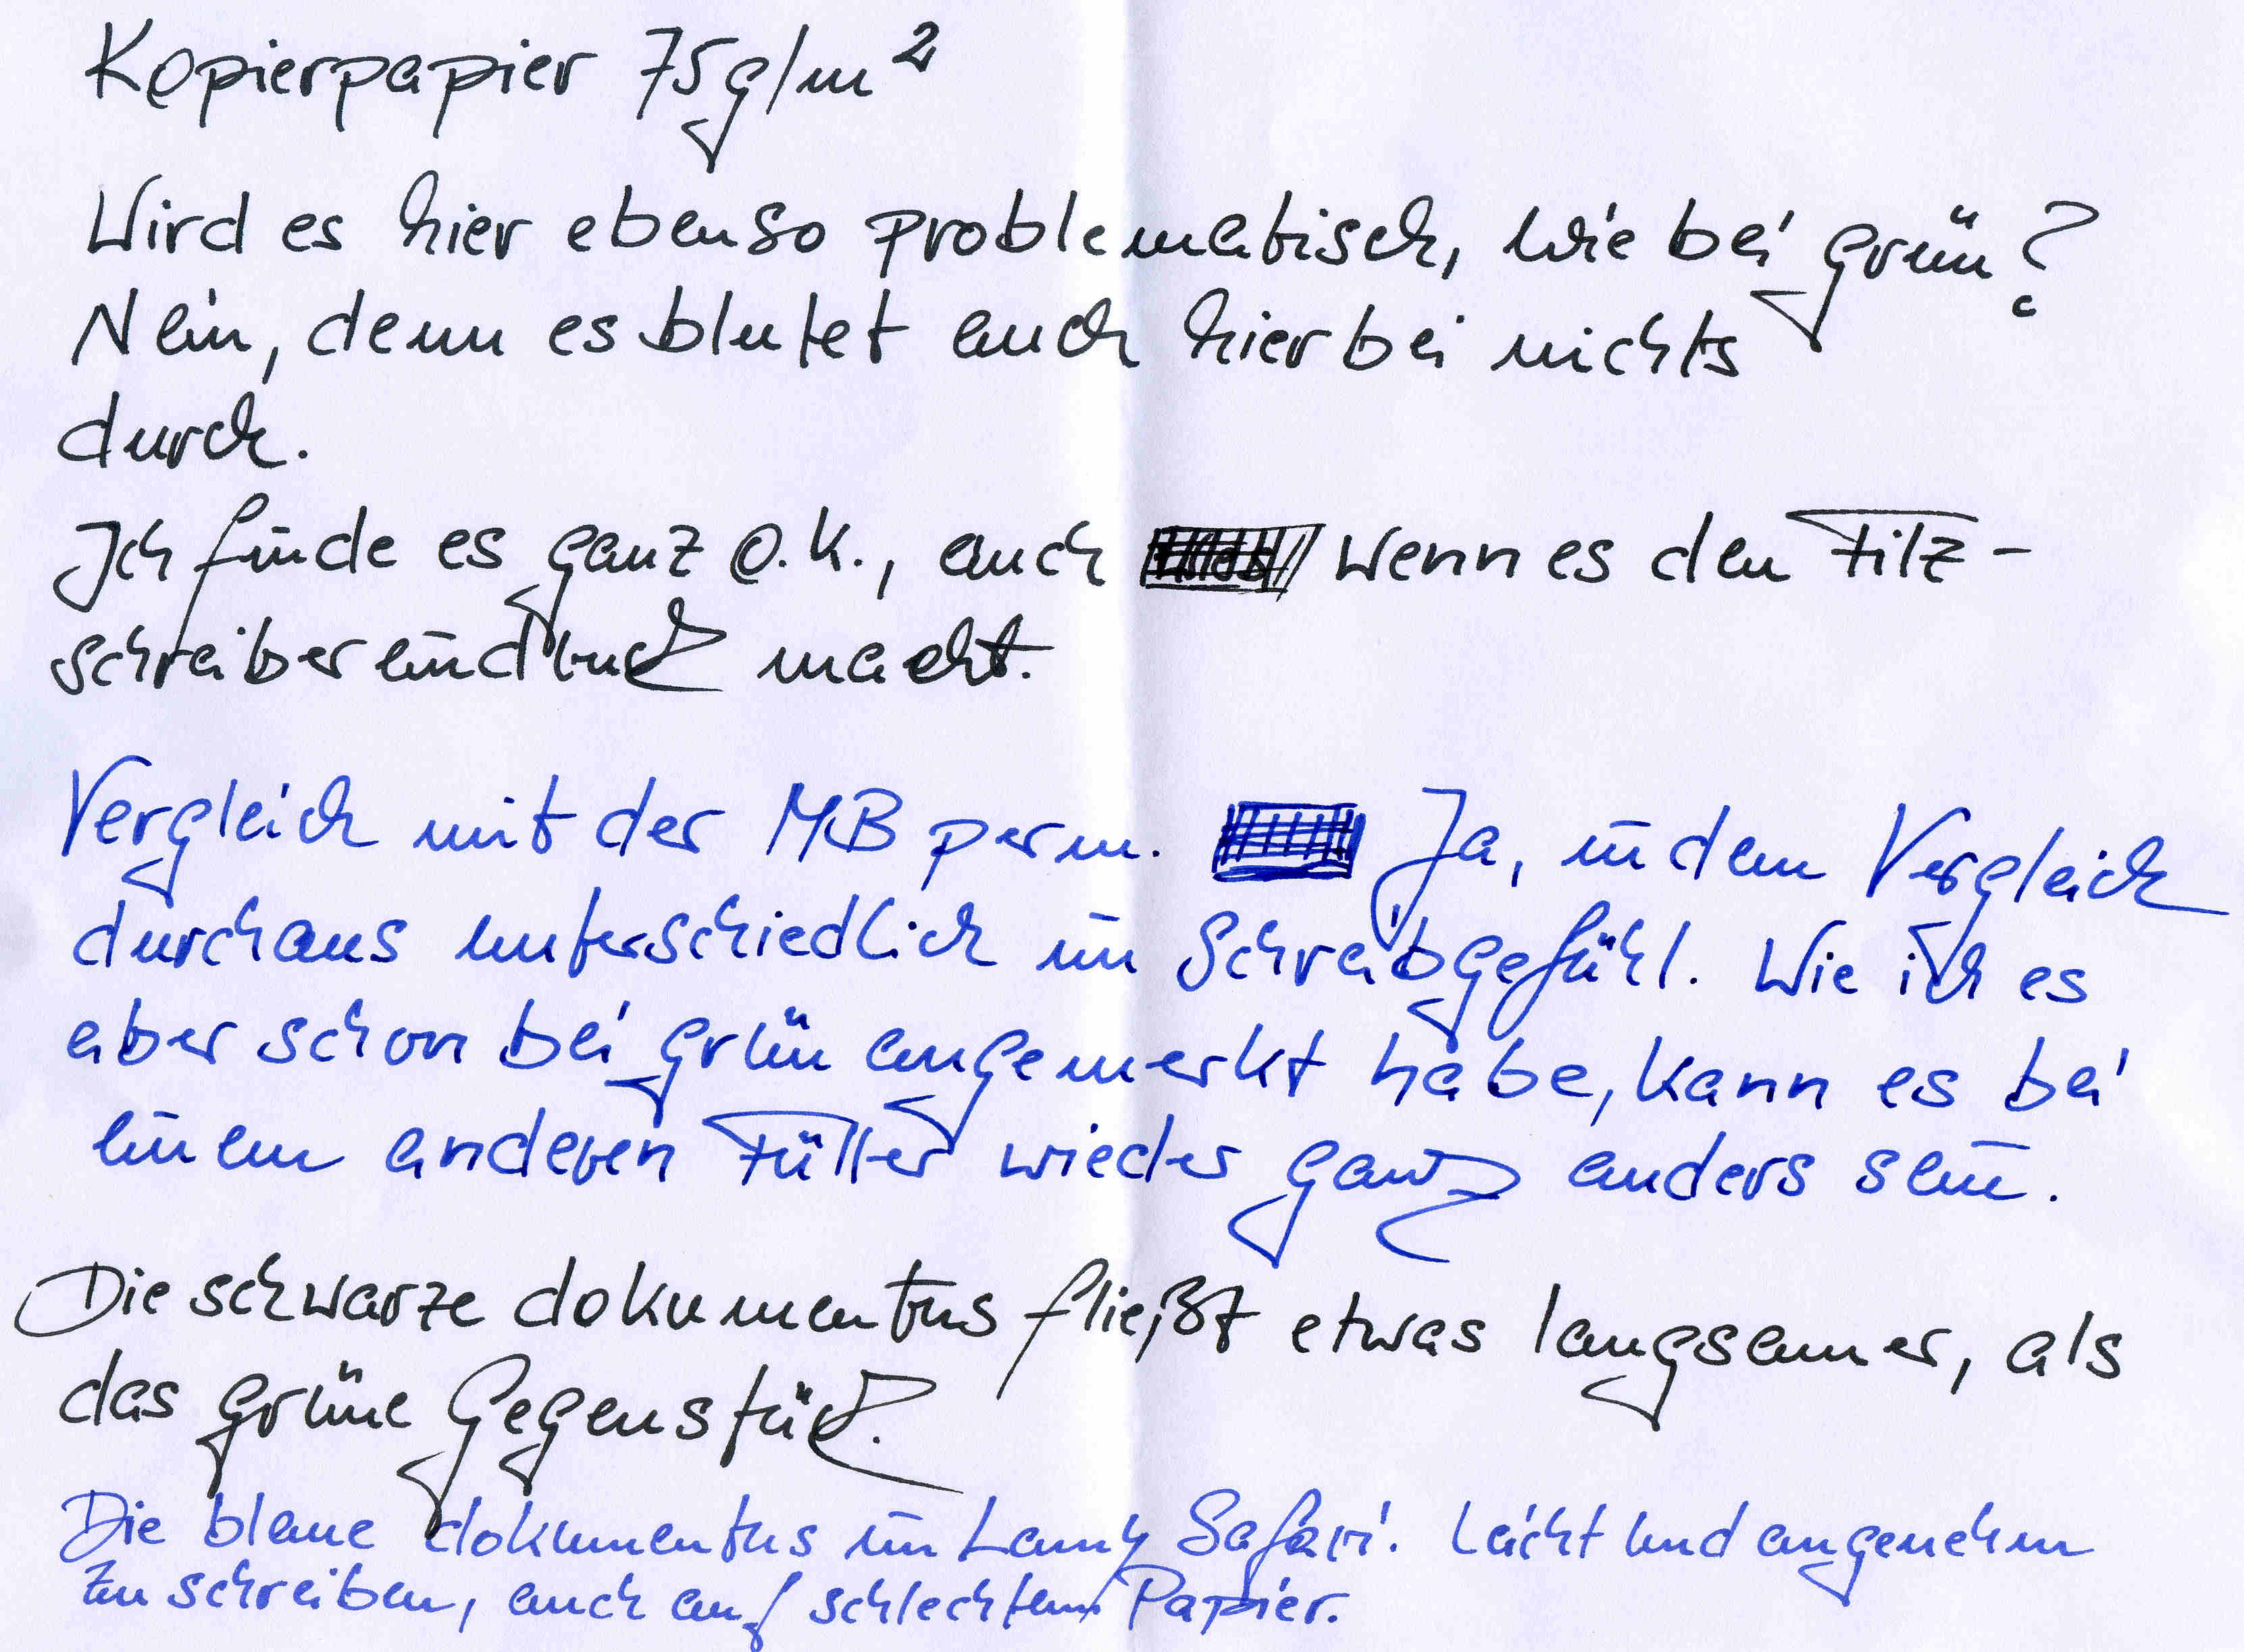 Kopierpapier 75g/m²
Wird es hier ebenso problematisch, wie bei grün?
Nein, denn es blutet auch hierbei nichts
durch.
Ich finde es ganz o.k., auch wenn es den Filz-
schreibereindruck macht.
Vergleich mit der MB perm. Ja, in dem Vergleich
durchaus unterschiedlich im Schreibgefühl. Wie ich es
aber schon bei grün angemerkt habe, kann es bei
einem anderen Füller wieder ganz anders sein.
Die schwarze dokumentus fließt etwas langsamer, als
das grüne Gegenstück.
Die blaue dokumentus im Lamy Safari. Leicht und angenehm
zu schreiben, auch auf schlechtem Papier.